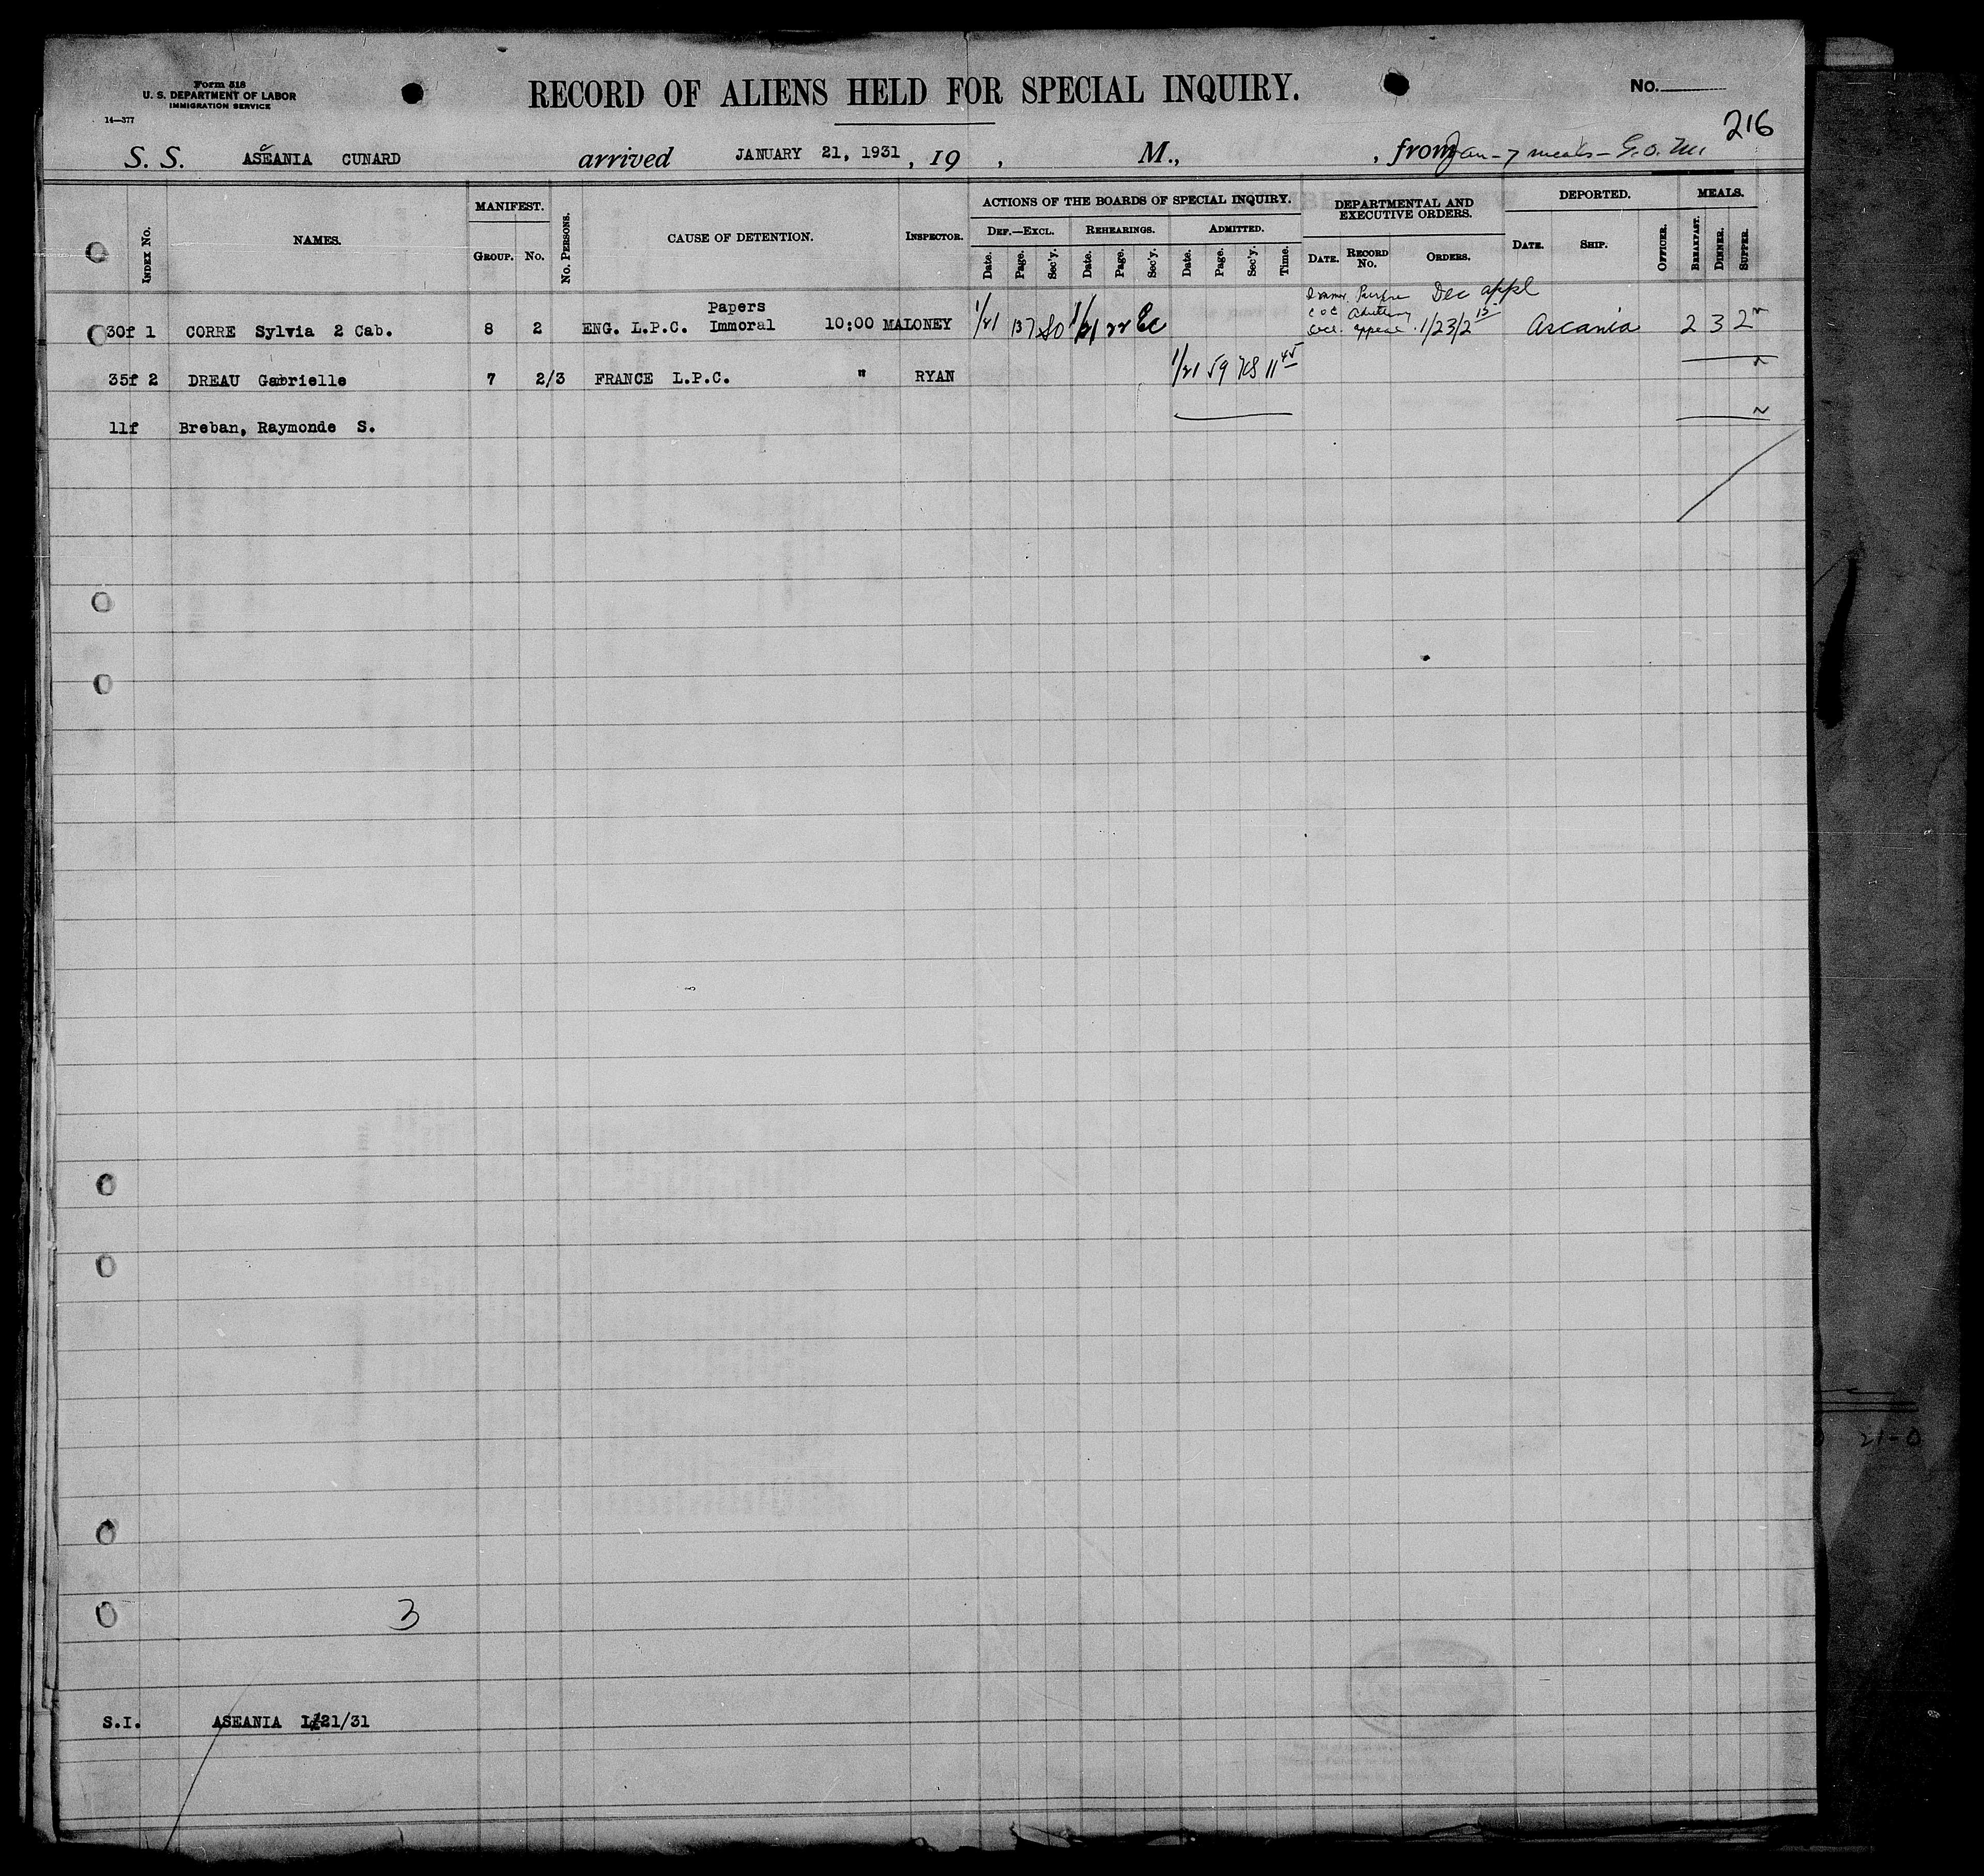 Form 518
U. S. DEPARTMENT OF LABOR
IMMIGRATION SERVICE
14—377
RECORD OF ALIENS HELD FOR SPECIAL INQUIRY.
No.
216
S. S. ASEANIA CUNARD arrived JANUARY 21, 1931, 19 , M., , from Jan - 7 meals - G.O.M.
INDEX No. NAMES. MANIFEST. GROUP. No. No. PERSONS. CAUSE OF DETENTION. INSPECTOR. ACTIONS OF THE BOARDS OF SPECIAL INQUIRY. DEF.—EXCL. Date. Page. Sec'y. REHEARINGS. Date. Page. Sec'y. ADMITTED. Date. Page. Sec'y. Time. DEPARTMENTAL AND EXECUTIVE ORDERS. DATE. RECORD No. ORDERS. DEPORTED. DATE. SHIP. OFFICER. MEALS. BREAKFAST. DINNER. SUPPER.
Papers Dec appl
30f 1 CORRE Sylvia 2 Cab. 8 2 ENG. L.P.C. Immoral 10:00 MALONEY 1/21 137 SO 1/21 22 Ec 1/23/2 15 Ascania 2 3 2
35f 2 DREAU Gabrielle 7 2/3 FRANCE L.P.C. " RYAN 1/21 59 KS 11 45
11f Breban, Raymonde S.
3
S.I. ASEANIA 1/21/31
21-0